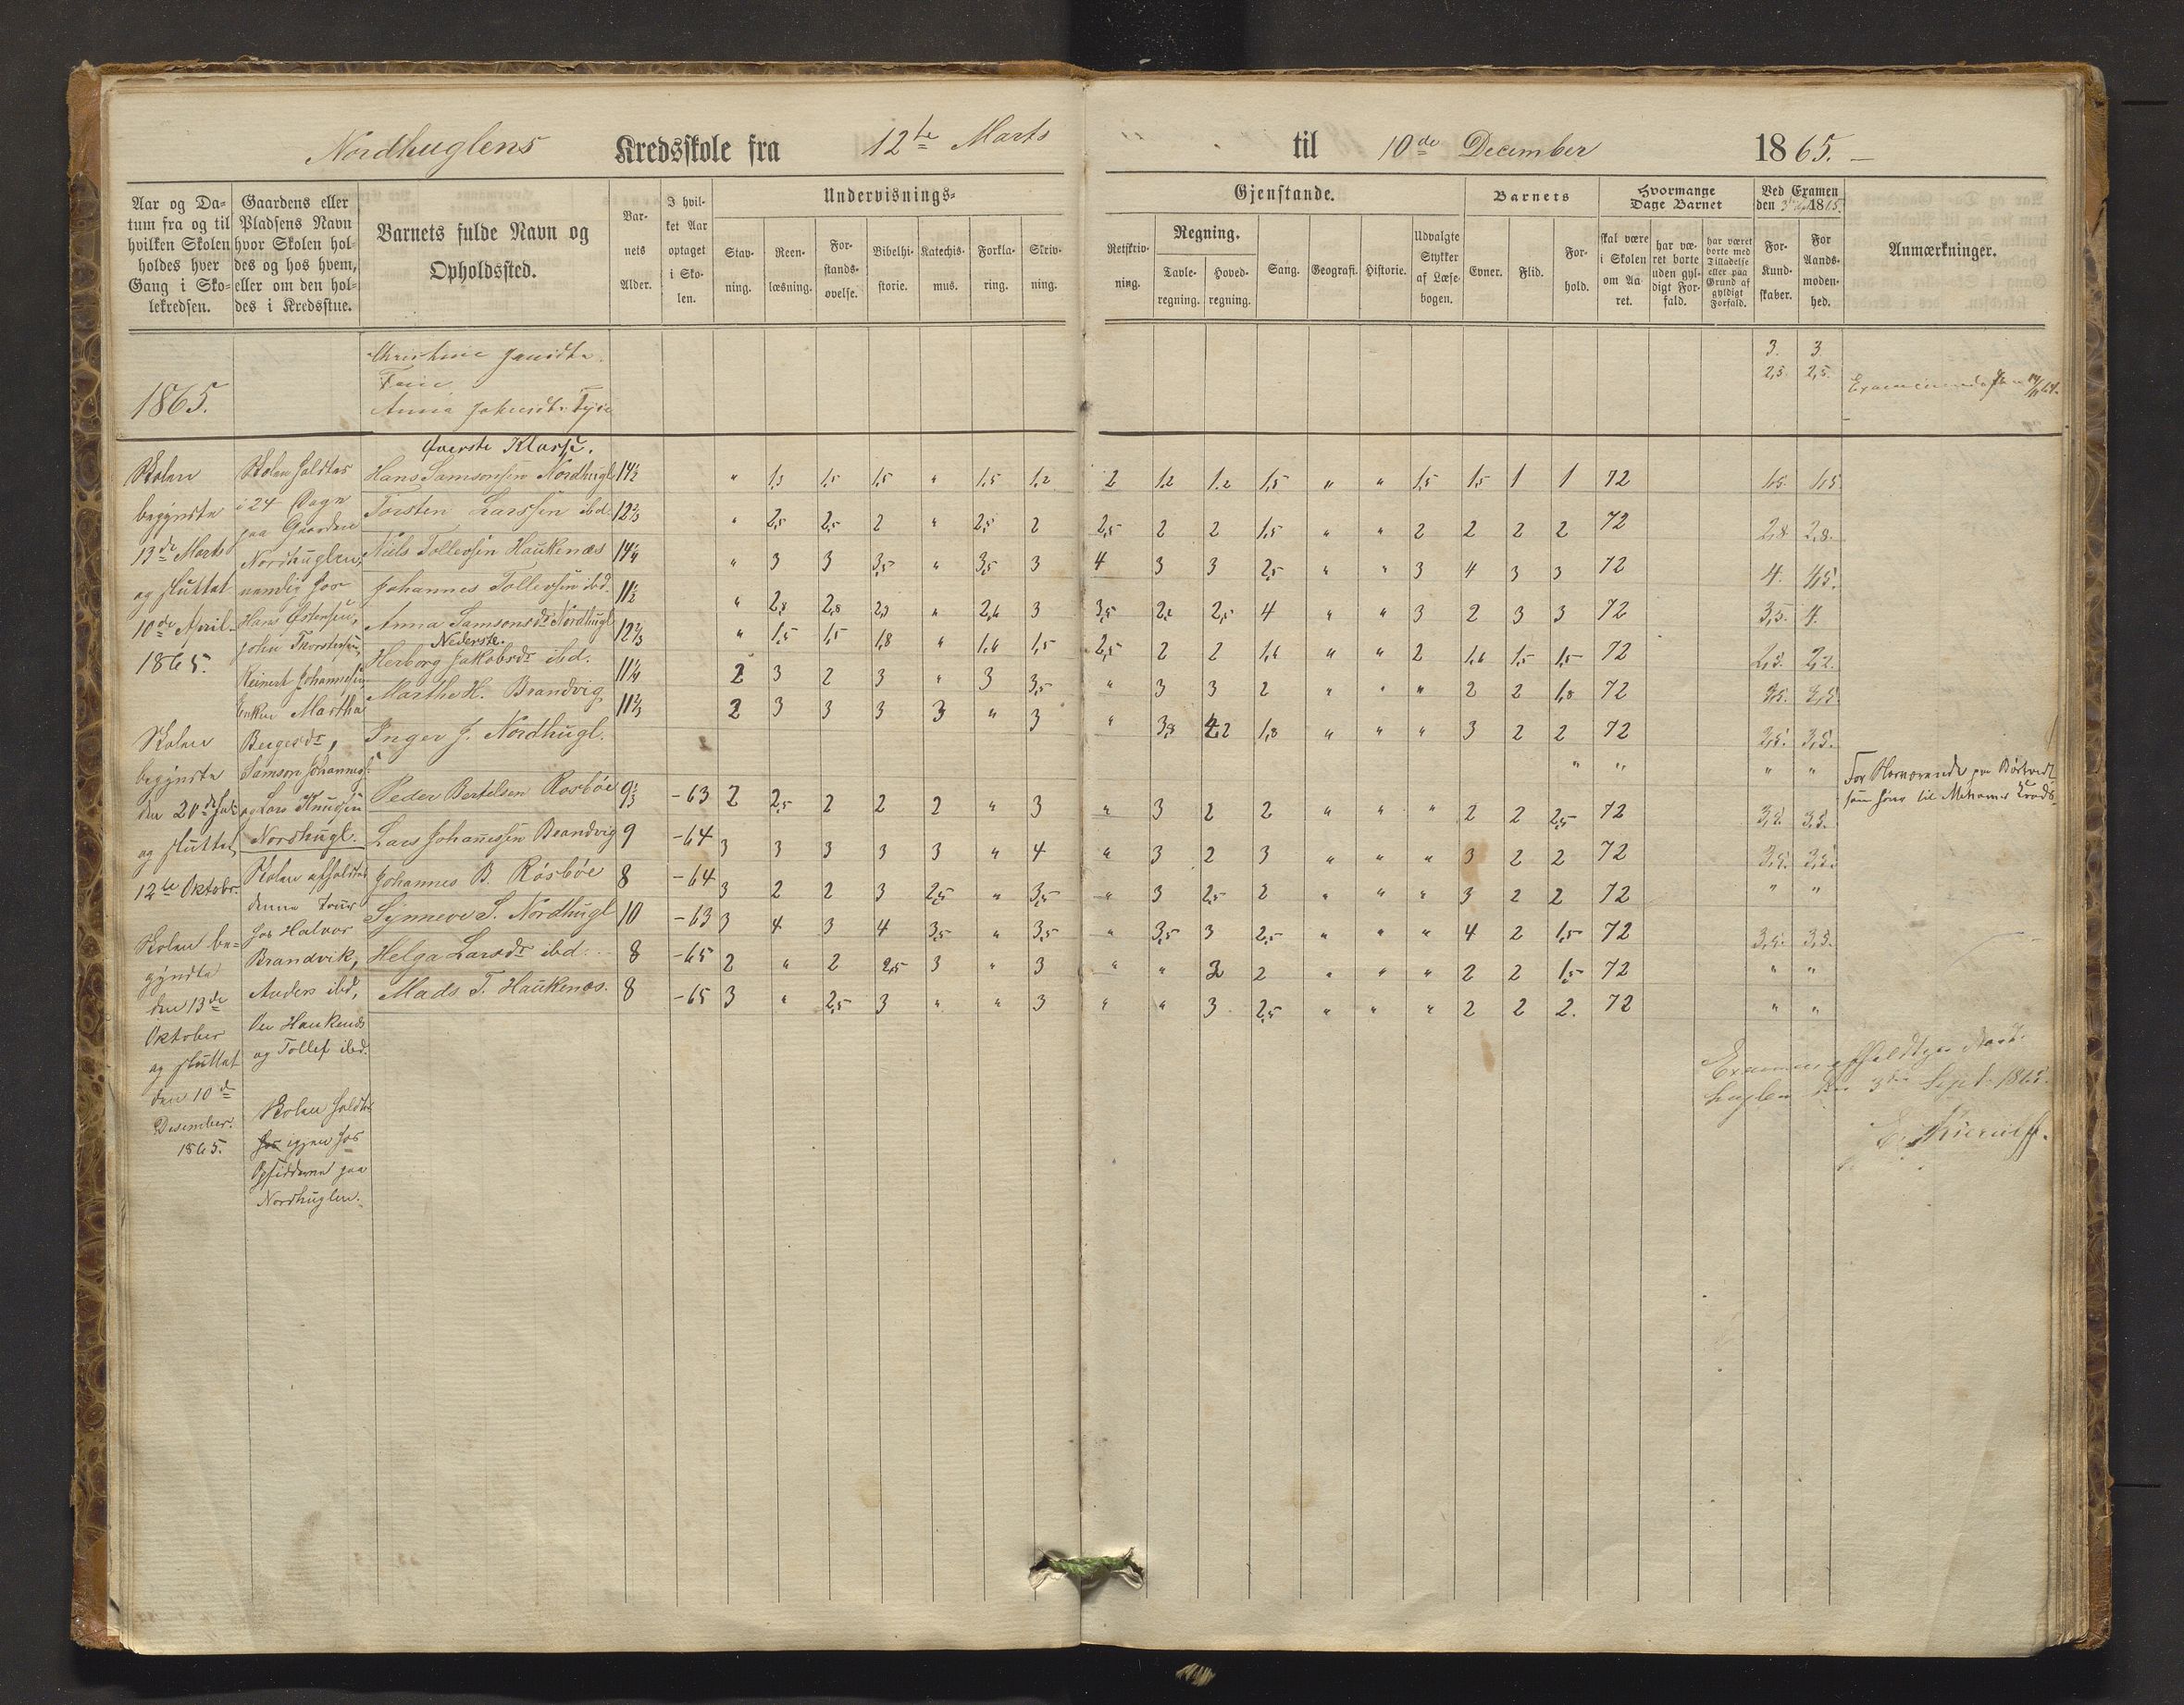 Nordhuglens Kredsskole fra 12te Marts til 10de December 1865. –
Aar og Da-
tum fra og til
hvilken Skolen
holdes hver
Gang i Sko-
lekredsen.
Gaardens eller
Pladsens Navn
hvor Skolen hol-
des og hos hvem,
eller om den hol-
des i Kredsstue.
Barnets fulde Navn og
Opholdssted.
Bar-
nets
Alder.
I hvil-
ket Aar
optaget
i Sko-
len.
Undervisnings-
Stav-
ning.
Reen-
læsning.
For-
stands-
øvelse.
Bibelhi-
storie.
Katechis-
mus.
Forkla-
ring.
Skriv-
ning.
Gjenstande.
Retskriv-
ning.
Regning.
Tavle-
regning.
Hoved-
regning.
Sang.
Geografi.
Historie.
Udvalgte
Stykker
af Læse-
bogen.
Barnets
Evner.
Flid.
For-
hold.
Hvormange
Dage Barnet
skal være
i Skolen
om Aa-
ret.
har væ-
ret borte
uden gyl-
digt For-
fald.
har været
borte med
Tilladelse
eller paa
Grund af
gyldigt
Forfald.
Ved Examen
den 3 Sept 1865.
For-
Kund-
skaber.
For
Aands-
moden-
hed.
Anmærkninger.
1865.
3. 3
2,3. 2,5.
Anna
Øverste Klasse.
Hans Samsonsen Nordhugl 14½ " 1,5 1,5 1,5 " 1,5 1,2 2 1,2 1,2 1,5 " " 1,5 1,5 1 1 72 1,5. 1,5
Torsten Larssen ibd. 12⅔ " 2,5 2,5 2 " 2,5 2 2,5 2 2 1,5 " " 2 2 2 2 72 2,8 2,8.
Niels Tollevsen Haukenæs 14¼ " 3 3 3,5 " 3,5 3 4 3 3 2,5 " " 3 4 3 3 72 4. 4,5.
Johannes Tollevsen ibd. 11½ " 2,8 2,8 2,3 " 2,6 3 3,5 2,2 2,5 4 " " 3 2 3 3 72 3,5. 4.
Anna Samsonsdr Nordhugl 12⅔ " 1,5 1,5 1,8 " 1,6 1,5 2,5 2 2 1,6 " " 2 1,6 1,5 1,5 72 2,3. 2,2.
Nederste.
Herborg Jakobsdr ibd. 11¼ 2 3 2 3 " 3 3,5 " 3 3 2 " " " 2 2 1,8 72 3,5. 3,5.
Marthe H. Brandvig 11⅔ 2 3 3 3 3 " 3 " 3,8 2 1,8 " " " 3 2 2 72 3,5. 3,5.
Inger J. Nordhugl. " " " "
Peder Bertelsen Rosbøe 9⅓ -63 2 2,5 2 2 2 " 3 " 3 2 2 " " " 2 2 2,5 72 3,2 3,5.
Lars Johannesen Brandvig 9 -64 3 3 3 3 3 " 4 " 3 2 3 " " " 3 2 2 72 3,5. 3,5.
Johannes B. Rösböe 8 -64 3 2 2 3 2,5 " 3,5 " 3 2,5 2 " " " 3 2 2 72 " "
Synneve S. Nordhugl 10 -63 3 4 3 4 3,5 " 3,5 " 3,5 3 2,5 " " " 4 2 1,5 72 3,5. 3,5.
Helga Larsdr ibd. 8 -65 2 " 2 2,5 3 " 3 " " 3 2 " " " 2 2 1,5 72 " "
Mads T. Haukenæs. 8 -65 3 " 2,5 3 " " 3 " " 3 2,5 " " " 2 2 2. 72 " "
Skolen
begyndte
13de Marts
og sluttet
10de April
1865.
Skolen
begyndte
den 20de
og sluttet
12te Oktobr.
Skolen be-
gyndte
den 13de
Oktober
og sluttet
den 10de
Desember.
1865.
Skolen holdtes
i 24 Dage
paa Gaarden
Nordhuglen,
nemlig hos
Hans Østensen,
John Thorstensen,
Reinert Johannesen,
Enken Martha
Bergesdr,
Samson Johannes.
og Lars Knudsen
Nordhugl.
Skolen afholdtes
denne
hos Halvor
Brandvik,
Anders ibd,
Ole Haukenæs
og Tollef ibd.
Skolen holdtes
hos igjen hos
Opsidderne paa
Nordhuglen.
For Nærværende paa
som hører til Kreds.
Examen afholdtes paa Nord-
huglen den 3die Sept. 1865.